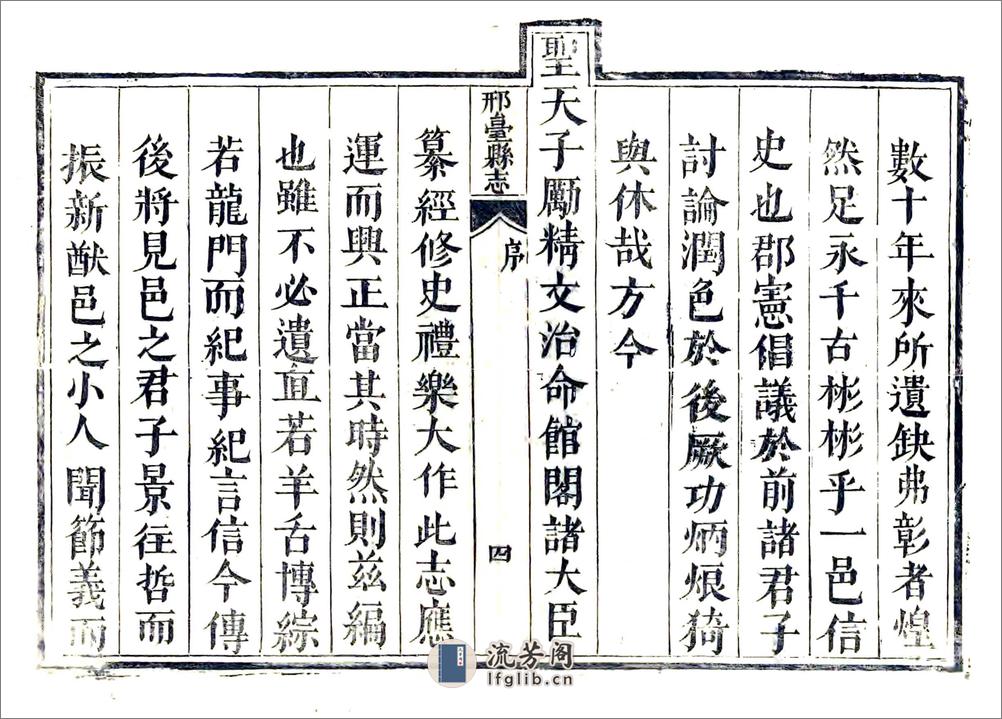 數十年來所遺缺弗彰者煌
然足永千古彬彬乎一邑信
史也郡憲倡議於前諸君子
討論潤色於後厥功炳烺猗
與休哉方今
聖天子勵精文治命館閣諸大臣
邢臺縣志
序
四
纂經修史禮樂大作此志應
運而興正當其時然則茲編
也雖不必遺直若羊舌博綜
若龍門而紀事紀言信今傳
後將見邑之君子景往哲而
振新猷邑之小人聞節義而
流芳阁
lfglib.cn